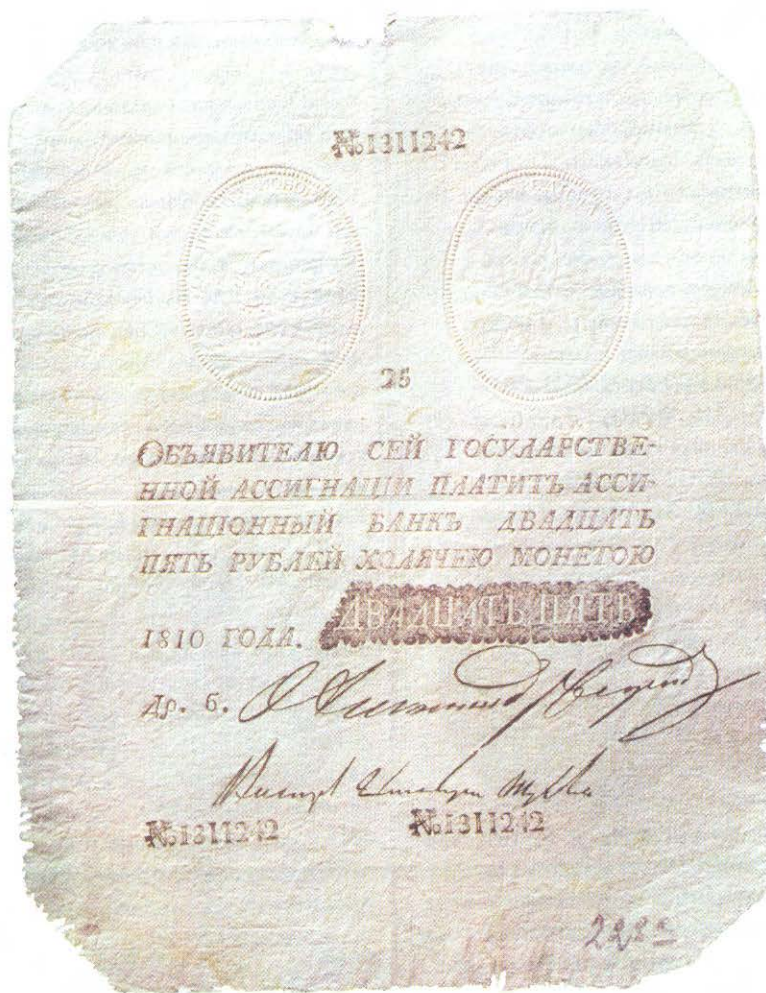 №1311242
25
ОБЪЯВИТЕЛЮ СЕЙ ГОСУДАРСТВЕ-
ННОЙ АССИГНАЦИИ ПЛАТИТЪ АССИ-
ГНАЦІОННЫЙ БАНКЪ ДВАДЦАТЬ
ПЯТЬ РУБЛЕЙ ХОДЯЧЕЮ МОНЕТОЮ
1810 ГОДА. ДВАДЦАТЬ ПЯТЬ
Др. б.
№1311242 №1311242